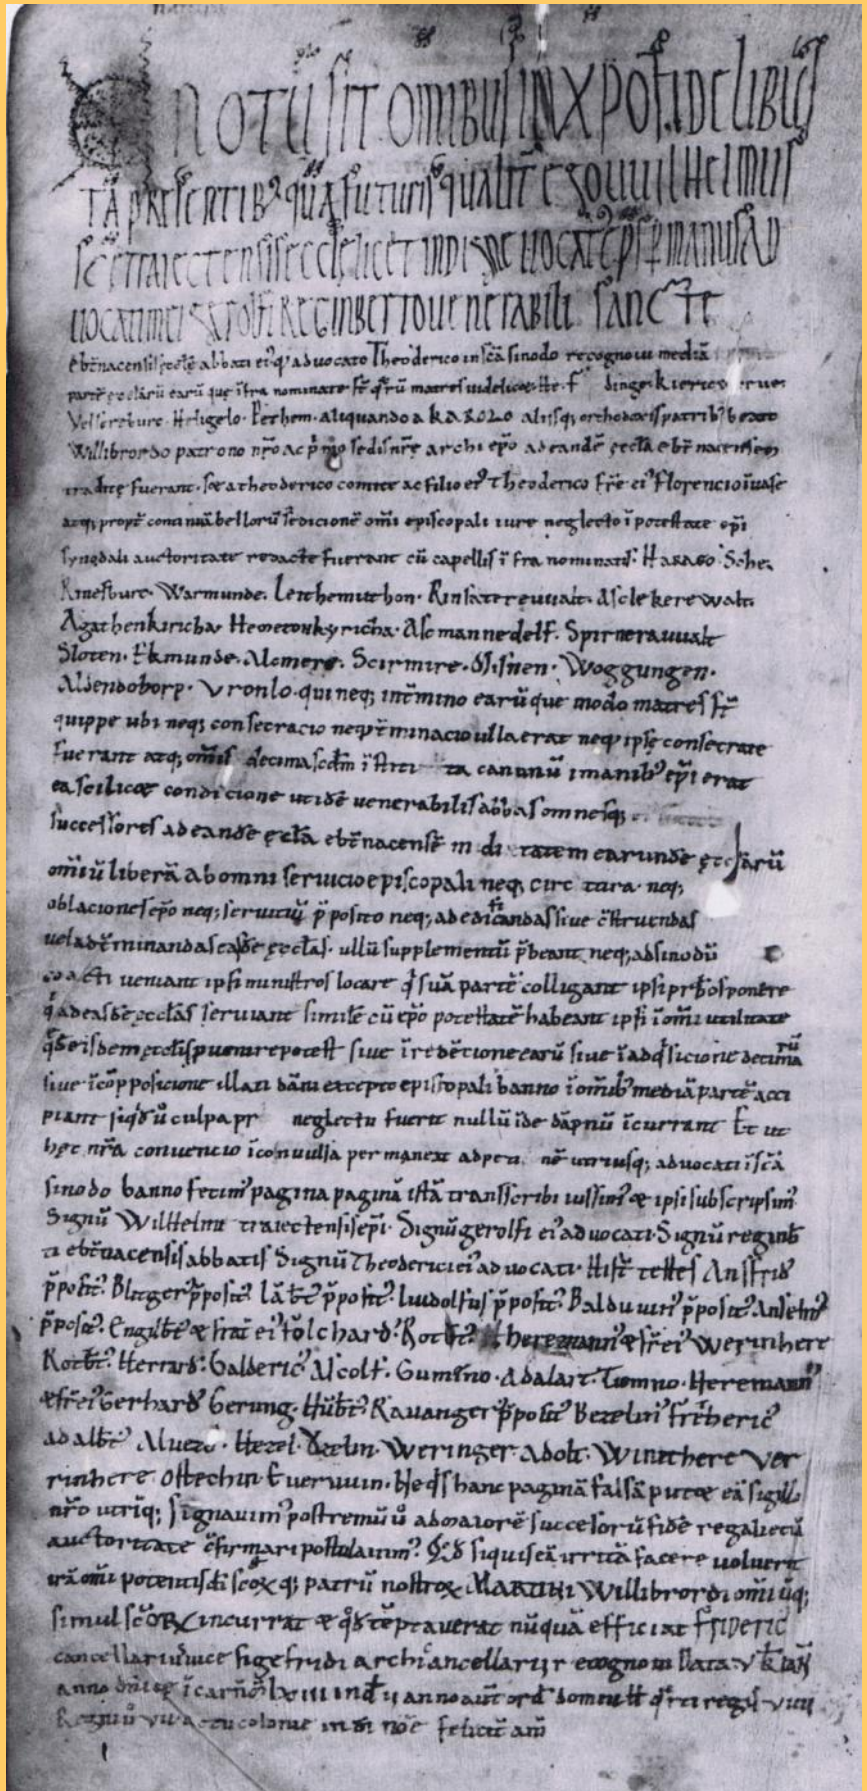 NOTŪ SIT OMIBUS IN XPO FIDELIBUS
TĀ PRESENTIB; QUĀ FUTURIS QUALIT EGO UUILHELMUS
SCE TRAIECTENSIS ECCLE LICET INDIGNE UOCAT EPS P MANUS AD
UOCATI MEI GEROLFI REGINBERTO UENERABILI SANCTE
ebtnacensis ęcclę abbati ei'q; aduocato Theoderico in scā sinodo recognoui mediā
partē ęcclārū earū quę infra nominate st qrū matres uidelicet he
Velsereburc. Heligelo. Pethem. aliquando a KAROLO aliisq; orthodoxis patrib; beato
Willibrordo patrono nrō ac pmo sedis nrē archi epō ad eandē ęcclā ebtnacensem
traditę fuerant. set a theoderico comite ac filio ei' Theoderico frē ei' Florencio īuase
atq; propt continuā bellorū sedicionē omi episcopali iure neglecto ī potestate epi
synodali auctoritate redacte fuerant cū capellis īfra nominatis. Harago. Sche.
Rinesburc. Warmunde. Leithemuthon. Rinsatereuualt. Asclekerewalt.
Agathenkiricha. Hemetonkyricha. Ascmannedelf. Spirnerauualt
Sloten. Ekmunde. Alcmere. Scirmire. Misnen. Woggungen.
Aldendohorp. Vronlo. qui neq; intmino earū que modo matres st
quippe ubi neq; consecracio neq; tminacio ulla erat neq; ipsę consecrate
fuerant atq; omis decima scdm īstitu ta canonū ī manib' epi erat
ea scilicet condicione ut idē uenerabilis abbas omnesq;
successores ad eandē ęcclā ebtnacensē m di etatem earundē ęcclārū
omiū liberā ab omni seruicio episcopali neq; circ tura neq;
oblaciones epō neq; seruitiū pposito neq; ad edificandas siue cstruendas
uel adtminandas easdē ęcclās. ullū supplementū pbeant neq; ad sinodū
coacti ueniant ipsi ministros locare qi suā partē colligant ipsi prbos ponere
qi ad easdē ęcclās seruiant similē cū epō potestatē habeant ipsi ī omi utilitate
qd eisdem ęcclis puenire potest siue ī redēcione earū siue ī adqsicione decimarū
siue ī cōpposicione illati dāni excepto episcopali banno ī omib' mediā partē acci
piant si qd u culpa pr neglectu fuerit nullū īde dāpnū īcurrant Et ut
hęc nrā conuencio īconuulsa permaneat ad peti nē utriusq; aduocati ī scā
sinodo banno fecim' pagina paginā istā transscribi iussim' et ipsi subscripsim'
Signū Wilhelmi traiectensis epi. Signū gerolfi ei' aduocati. Signū reginb
ti ebtnacensis abbatis Signū Theoderici ei' aduocati. Hi st testes Ansfrid'
pposit'. Blitger' pposit' Lābt' pposit'. Liudolfus pposit'. Balduuin' pposit'. Anselm'
pposit'. Engilbt' et frat ei' folchard'. Rotbt'. heremann' et fr ei' Werinhere
Rotbt'. Herrard'. Galderic'. Ascolf. Gumino. Adalart. Tiemno. Heremann'
et fr ei' Gerhard' Gerung. Hubt'. Rauanger' pposit' Bezelin' fretheric'
adalbt' Aluero. Hezel. Wezelin. Weringer. Adolt. Winithere Ver
rinhere. Ostechin. Euerwin. Ne qs hanc paginā falsā putet eā sigillo
nrō utriq; signauim' postremū u ad maiorē successorū fidē regali eciā
auctoritate cfirmari postulauim'. Qd si quis eā irritā facere uoluerit
irā omipotentis di scorxq; patrū nostrorx MARTINI Willibrordi omiūq;
simul scorx incurrat et qd tēptauerat nūquā efficiat FRIDERIC'
cancellarius uice sigefridi archicancellarii recognoui Data V K IAN
anno dnicę īcarn Mlxiii ind ii anno aut ord domni H qrti regis viiii
Regni u vii actū colonie in di noē felicit am